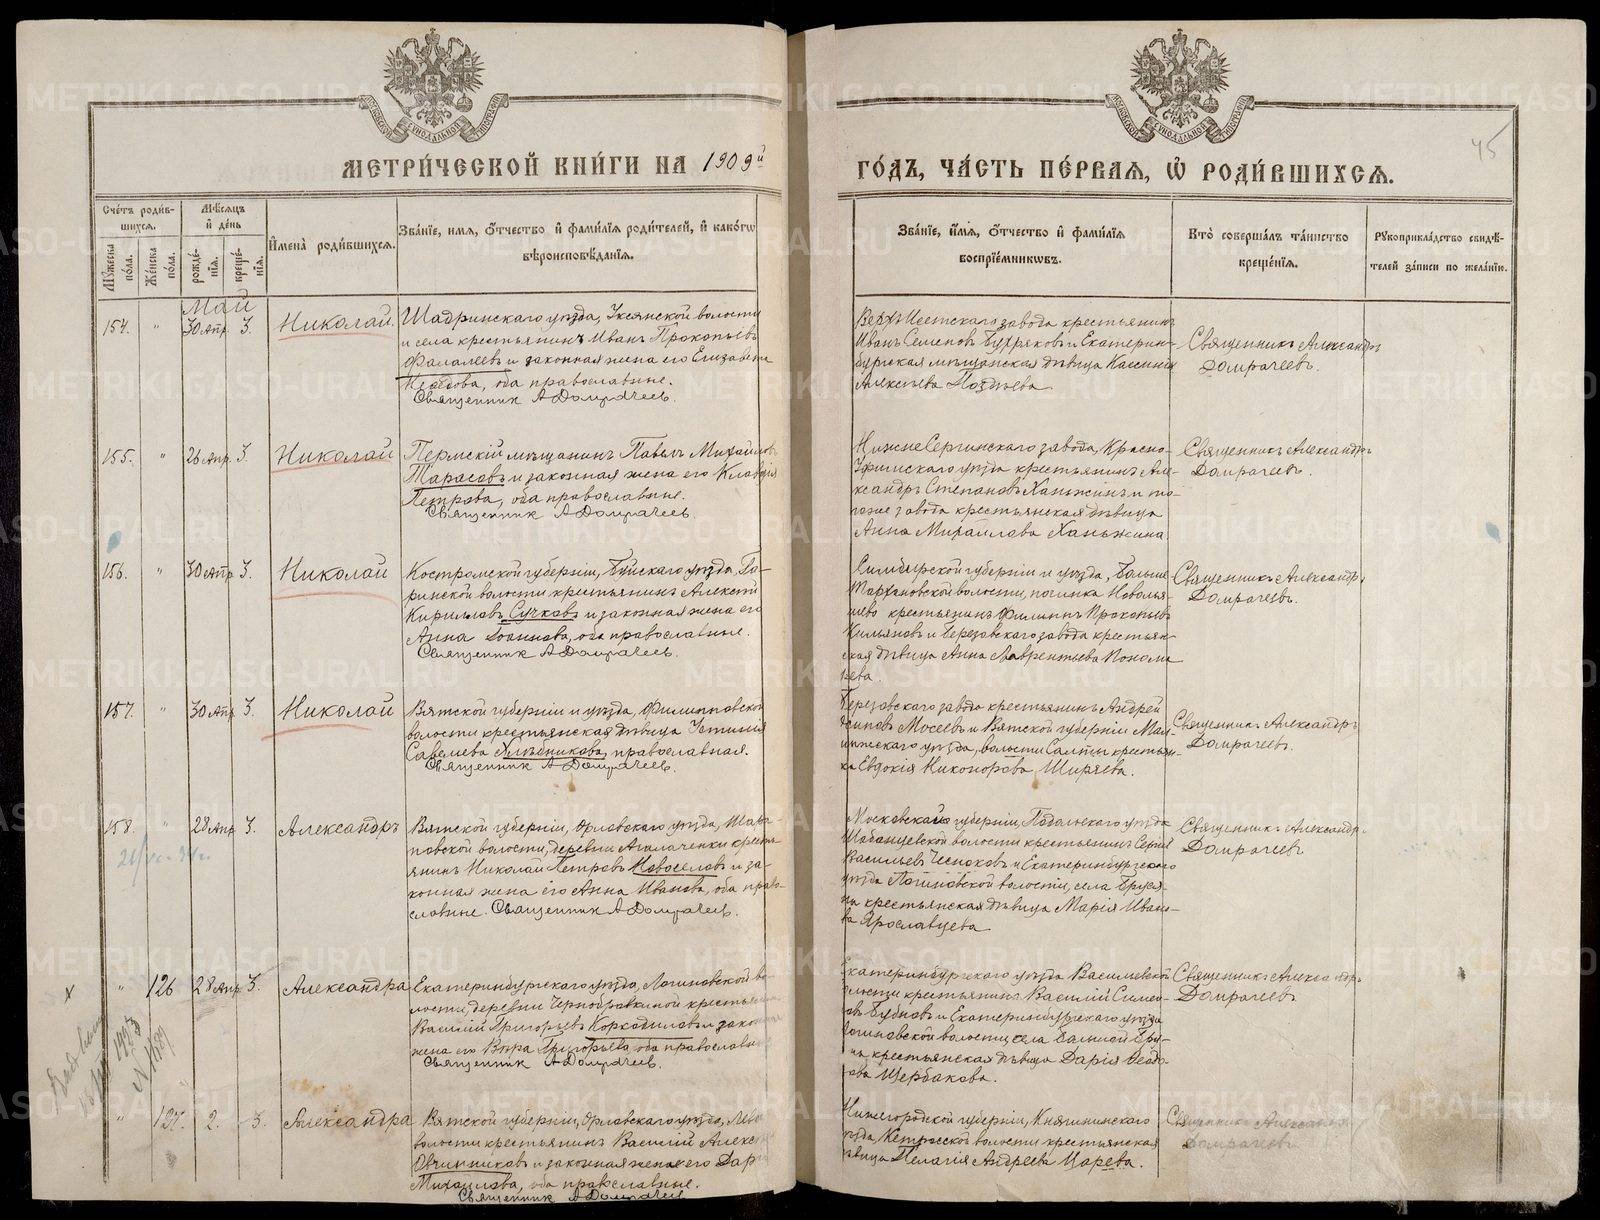 МЕТРИ́ЧЕСКОЙ КНИ́ГИ НА 1909й
ГО́ДЪ, ЧА́СТЬ ПЕ́РВАЯ, Ѡ РОДИ́ВШИХСЯ.
45
Сче́тъ роди́вшихся.
Му́жеска по́ла.
Же́нска по́ла.
Мѣ́сяцъ и де́нь
рожде́нїя.
креще́нїя.
Имена̀ роди́вшихся.
Зва́нїе, имя, о́тчество и фами́лїя роди́телей, и како́гѡ
вѣроисповѣ́данїя.
Зва́нїе, и́мя, о́тчество и фами́лїя
воспрїе́мникѡвъ.
Кто̀ соверша́лъ та́инство
креще́нїя.
Рукоприкла́дство свидѣ́-
телей за́писи по жела́нїю.
Май
154. " 30 Апр. 3. Николай.
Шадринскаго уѣзда, Уксянской волости
и села крестьянинъ Иванъ Прокопьевъ
Фалалеевъ и законная жена его Елизавета
оба православные.
Священник А Домрачеев.
Верхъ Исетскаго завода крестьянинъ
Иванъ Семеновъ и Екатерин-
бургская мѣщанская дѣвица
Алексѣева
Священникъ Александръ
Домрачеевъ.
155. " 26 Апр. 3. Николай
Пермскій мѣщанинъ Павелъ Михайловъ
Тарасовъ и законная жена его Клавдія
Петрова, оба православные.
Священник А Домрачеев.
Нижне Сергинскаго завода, Красно-
Уфимскаго уѣзда крестьянинъ Але-
ксандръ Степановъ Ханьжинъ и то-
гоже завода крестьянская дѣвица
Анна Михайлова Ханьжина
Священникъ Александръ
Домрачеевъ.
156. " 30 Апр. 3. Николай
Костромской губерніи, Буйскаго уѣзда,
волости крестьянинъ Алексѣй
Кирилловъ Сучковъ и законная жена его
Анна Іоаннова, оба православные.
Священник А Домрачеев.
Симбирской губерніи и уѣзда, Больше
Тархановской волости, починка
крестьянинъ Филиппъ Прокопьевъ
Кильяновъ и Березовскаго завода крестьян-
ская дѣвица Анна Лаврентьева Понома
рева.
Священникъ Александръ
Домрачеевъ.
157. " 30 Апр. 3. Николай
Вятской губерніи и уѣзда, Филипповской
волости крестьянская дѣвица Устинія
Савельева Хлѣбникова, православная.
Священник А Домрачеев.
Березовскаго завода крестьянинъ Андрей
Осиповъ Мосеевъ и Вятской губерніи Мал-
мыжскаго уѣзда, волости крестьян-
ка Евдокія Никонорова Ширяева.
Священникъ Александръ
Домрачеевъ.
158. " 28 Апр. 3. Александръ
Вятской губерніи, Орловскаго уѣзда, Шара-
повской волости, деревни Агалаченки кресть-
янинъ Николай Петровъ Новоселовъ и за-
конная жена его Анна Иванова, оба право-
славные. Священник А Домрачеев.
Московской губерніи, Подольскаго уѣзда
волости крестьянинъ Сергій
Васильевъ Чесноковъ и Екатеринбургскаго
уѣзда Логиновской волости, села Бруся-
ны крестьянская дѣвица Марія Ивано-
ва Ярославцева
Священникъ Александръ
Домрачеевъ
" 126 28 Апр. 3. Александра
Екатеринбургскаго уѣзда, Логиновской во-
лости, деревни крестьянинъ
Василій Григорьевъ Коркодиловъ и законная
жена его Вѣра Григорьева, оба православные
Священник А Домрачеев.
Екатеринбургскаго уѣзда Васильевской
волости крестьянинъ Василій Симео-
новъ Бубновъ и Екатеринбургскаго уѣзда
Логиновской волости, села Большой Бру-
сяны крестьянская дѣвица Дарія Ѳеодо-
рова Щербакова.
Священникъ Александръ
Домрачеевъ
" 127. 2. 3. Александра
Вятской губерніи, Орловскаго уѣзда,
волости крестьянинъ Василій Алексѣевъ
Овчинниковъ и законная жена его Дарія
Михайлова, оба православные.
Священник А Домрачеев
Нижегородской губерніи, Княгининскаго
уѣзда, волости крестьянская
дѣвица Пелагія Андреева Царева.
Священникъ Александръ
Домрачеевъ
METRIKI.GASO-URAL.RU